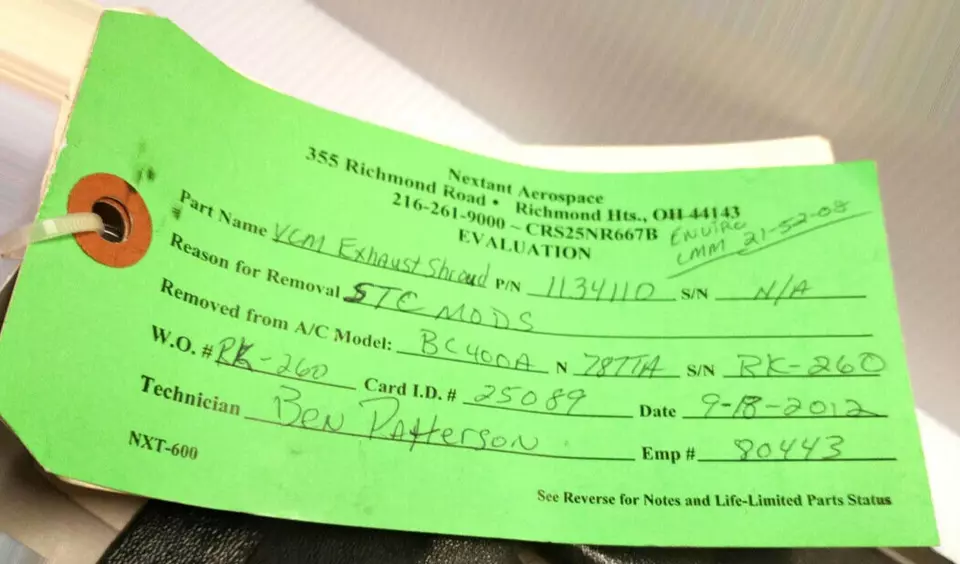 Nextant Aerospace
355 Richmond Road • Richmond Hts., OH 44143
216-261-9000 ~ CRS25NR667B
EVALUATION
ENVIRO
CMM 21-52-08
Part Name VCM Exhaust Shroud P/N 1134110 S/N N/A
Reason for Removal STC MODS
Removed from A/C Model: BC400A N 78TTA S/N RK-260
W.O. # RK-260 Card I.D. # 25089 Date 9-18-2012
Technician Ben Patterson Emp # 80443
NXT-600
See Reverse for Notes and Life-Limited Parts Status